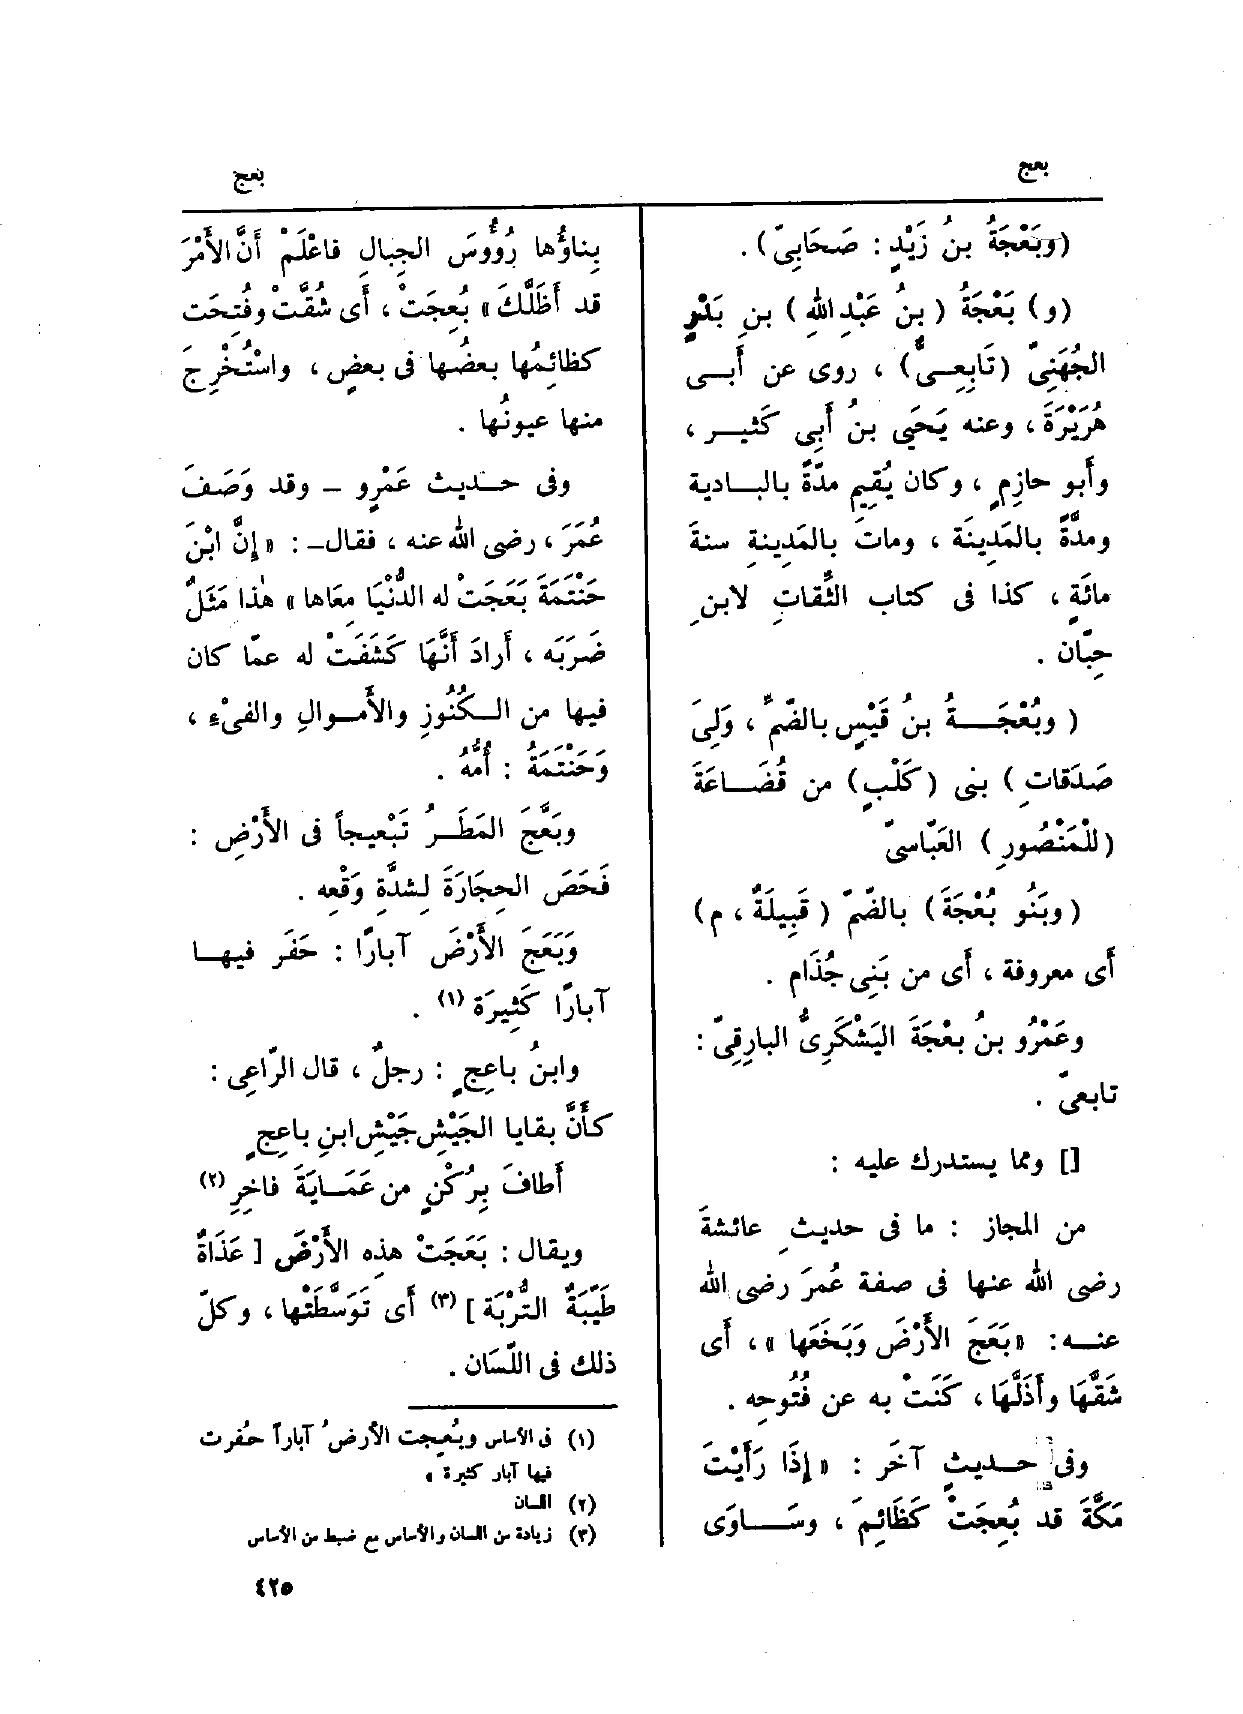 بعج
بعج
(وبَعْجَةُ بنُ زَيْدٍ : صَحَابِىّ) .
(و) بَعْجَةُ (بنُ عَبْدِ الله) بنِ بَدْرٍ
الجُهَنِىّ (تَابِعِــىٌّ) ، روى عن أَبــى
هُرَيْرَةَ ، وعنه يَحَيى بنُ أَبِى كَثيــر ،
وأَبو حازِمٍ ، وكان يُقِيم مدّةً بالبــادية
ومدَّةً بالمَدِينَة ، وماتَ بالمَدِينةِ سنةَ
مائَةٍ ، كذا فى كتاب الثِّقاتِ لابنِ
حِبّان .
( وبُعْجَــــةُ بنُ قَيْسٍ بالضّمِّ ، وَلِىَ
صَدَقاتِ ) بنى (كَلْبٍ) من قُضَــاعَةَ
(للْمَنْصُورِ ) العَبّاسىّ
(وبَنُو بُعْجَةَ) بالضّمّ (قَبِيلَةٌ ، م)
أَى معروفة ، أَى من بَنِى جُذَام .
وعَمْرُو بنُ بعْجَةَ اليَشْكَرِىُّ البارِقِىّ :
تابعىّ .
[] ومما يستدرك عليه :
من المجاز : ما فى حديثِ عائشةَ
رضى الله عنها فى صفة عُمرَ رضى الله
عنــه : «بَعَجَ الأَرْضَ وَبَخَعَها » ، أَى
شَقَّهَا وأَذَلَّهَا ، كَنَتْ به عن فُتُوحِه .
وفى حــديثٍ آخَر : «إِذَا رَأَيْتَ
مَكَّةَ قد بُعِجَتْ كَظَائِمَ ، وسَــــاوَى
بِناؤُها رُؤُوسَ الجِبالِ فاعْلَمْ أَنَّ الأَمْرَ
قد أَظَلَّكَ » بُعِجَتْ ، أَى شُقَّتْ وفُتِحَت
كظائِمُها بعضُها فى بعضٍ ، واسْتُخْرِجَ
منها عيونُها .
وفى حــديث عَمْرٍو – وقد وَصَفَ
عُمَرَ ، رضى الله عنه ، فقال– : «إِنَّ ابْنَ
حَنْتَمَةَ بَعَجَتْ له الدُّنْيَا مِعَاها » هٰذا مَثَلٌ
ضَرَبَه ، أَرادَ أَنَّهَا كَشَفَتْ له عمّا كان
فيها من الــكُنُوزِ والأَمــوالِ والفىْءِ ،
وَحَنْتَمَةُ : أُمُّهُ .
وبَعَّجَ المَطَــرُ تَبْعيجاً فى الأَرْضِ :
فَحَصَ الحِجَارَةَ لِشدَّةِ وَقْعِه .
وَبَعَجَ الأَرْضَ آبارًا : حَفَر فيهــا
آبارًا كَثِيرَة (١) .
وابنُ باعِجٍ : رجلٌ ، قال الرّاعِى :
كأَنَّ بقايا الجَيْشِ جَيْشِ ابنِ باعِجٍ
أَطافَ بِرُكْنٍ من عَمَــايَةَ فاخِرِ (٢)
ويقال : بَعَجَتْ هذِه الأَرْضَ [ عَذَاةٌ
طَيِّبَةُ التُّرْبَة ] (٣) أَى تَوَسَّطَتْها ، وكلّ
ذلك فى اللّسَان .
(١) فى الأساس وبُعِجت الأرضُ آباراً حُفرت
فيها آبار كثيرة »
(٢) اللسان
(٣) زيادة من اللسان والأساس مع ضبط من الأساس
٤٢٥